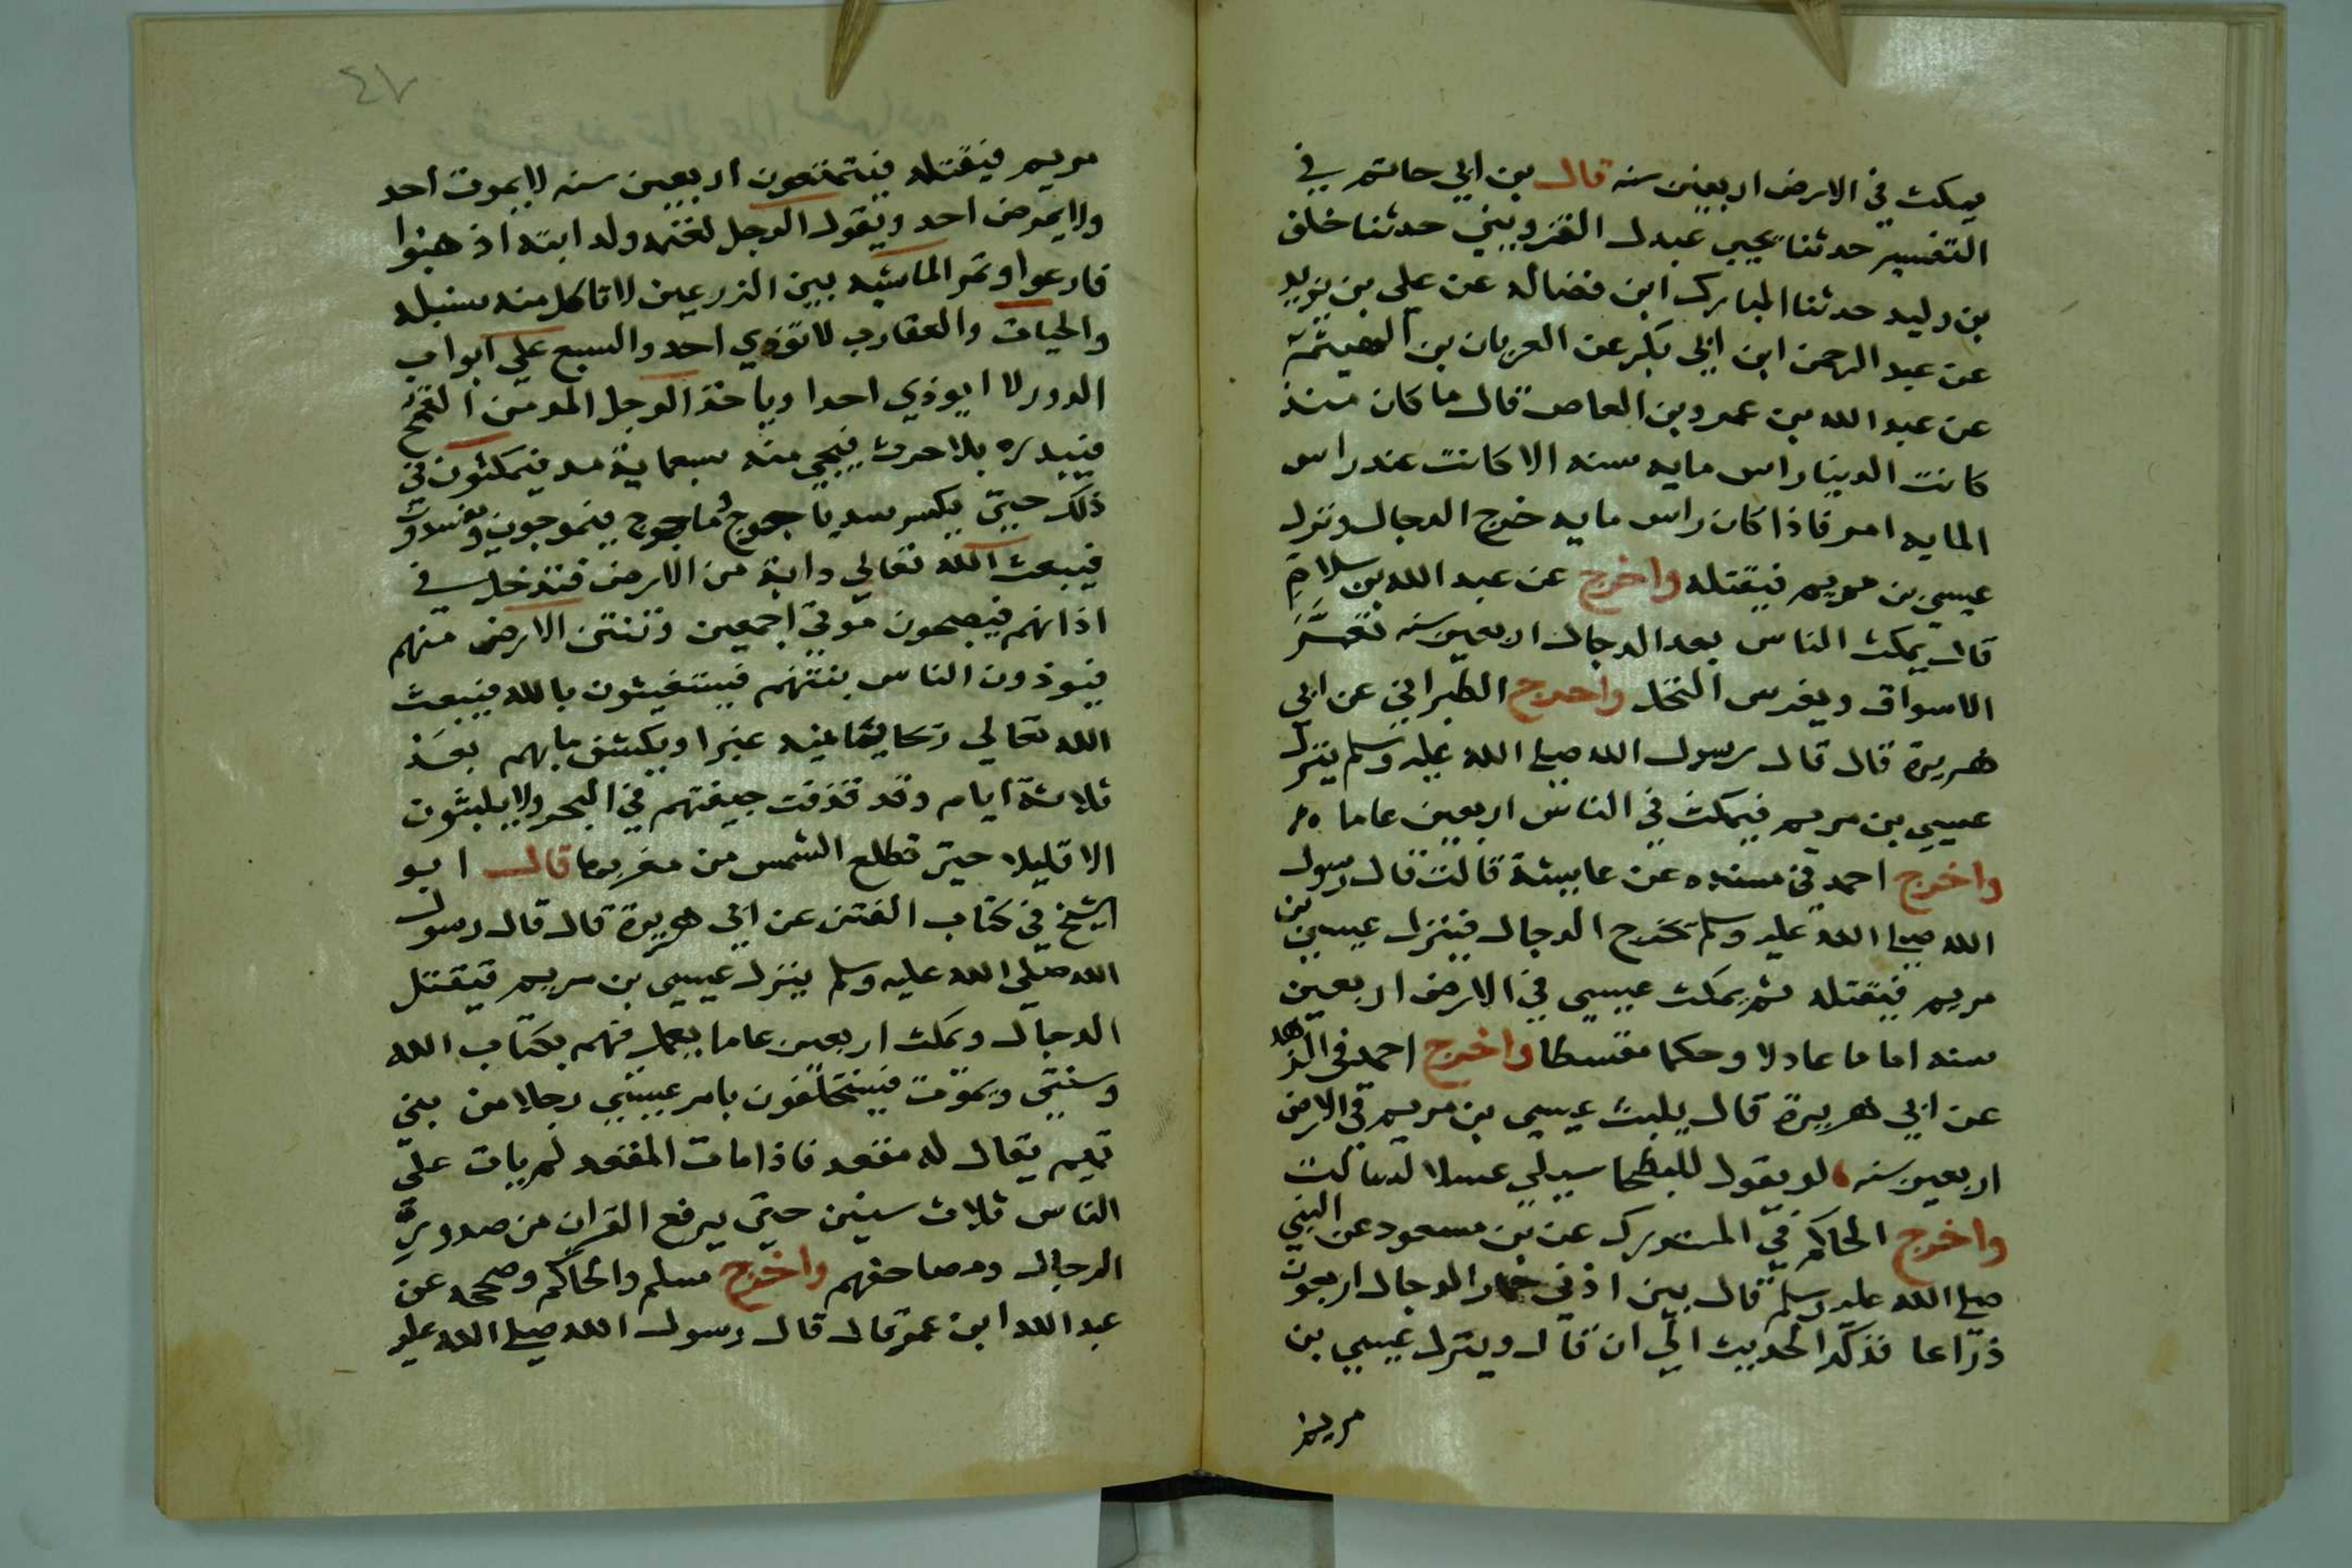 يمكث في الارض اربعين سنه قال بن ابي حاتم في
التفسير حدثنا يحيى عبدل القزويني حدثنا خلف
بن وليد حدثنا المبارك ابن فضاله عن علي بن يزيد
عن عبد الرحمن ابن ابي بكر عن العربان بن الهيثمة
عن عبد الله بن عمرو بن العاص قال ما كان منذ
كانت الدينا راس مايه سنه الا كانت عند راس
المايه امر فاذا كان راس مايه خرج الدجال ونزل
عيسي بن مريم فيقتله واخرج عن عبد الله بن سلام
قال يمكث الناس بعد الدجال اربعين سنه تعمر
الاسواق ويغرس النخل واخرج الطبراني عن ابي
هريرة قال قال رسول الله صلى الله عليه وسلم ينزل
عيسي بن مريم فيمكث في الناس اربعين عاما
واخرج احمد في مسنده عن عايشة قالت قال رسول
الله صلى الله عليه وسلم يخرج الدجال فينزل عيسى بن
مريم فيقتله ثم يمكث عيسي في الارض اربعين
سنه اماما عادلا وحكما مقسطا واخرج احمد في الزهد
عن ابي هريرة قال يلبث عيسى بن مريم في الارض
اربعين سنه لو يقول للبطحا سيلي عسلا لسالت
واخرج الحاكم في المستدرك عن بن مسعود عن النبي
صلى الله عليه وسلم قال بين اذني حمار الدجال اربعون
ذراعا فذكر الحديث الي ان قال وينزل عيسي بن
مريم
٤٧
مريم فيقتله فيتمتعون اربعين سنه لا يموت احد
ولا يمرض احد ويقول الرجل لغنمه ولدابته اذهبوا
فارعوا وتمر الماشيه بين الزرعين لا تاكل منه سنبله
والحيات والعقارب لا توذي احد والسبع على ابواب
الدور لا ايوذي احدا وياخذ الرجل المد من القمح
فيبدره بلا حرث فيجي منه سبعماية مد فيمكثون في
ذلك حتي يكسر سد ياجوج وماجوج فيموجون ويفسدون
فيبعث الله تعالي دابة من الارض فتدخل في
اذانهم فيصبحون موتي اجمعين وتنتن الارض منهم
فيوذون الناس بنتنهم فيستغيثون بالله فيبعث
الله تعالي ريحا يمانيه غبرا ويكشف ما بهم بعد
ثلاثة ايام وقد قذفت جيفتهم في البحر ولا يلبثون
الا قليلا حتي تطلع الشمس من مغربها قال ابو
الشيخ في كتاب الفتن عن ابي هريرة قال قال رسول
الله صلي الله عليه وسلم ينزل عيسي بن مريم فيقتل
الدجال ويمكث اربعين عاما يعمل فيهم بكتاب الله
وسنتي ويموت فيستخلفون بامر عيسي رجلا من بني
تميم يقال له مقعد فاذا مات المقعد لم يات على
الناس ثلاث سنين حتي يرفع القران من صدور
الرجال ومصاحفهم واخرج مسلم والحاكم وصححه عن
عبد الله ابن عمر قال قال رسول الله صلى الله عليه